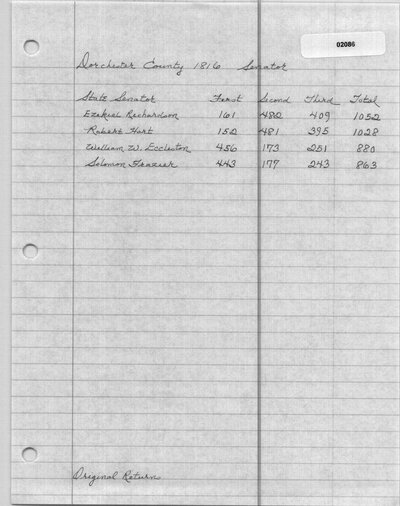 02086
Dorchester County 1816 Senator
State Senator First Second Third Total
Ezekiel Richardson 161 482 409 1052
Robert Hart 152 481 395 1028
William W. Eccleston 456 173 251 880
Solomon Frazier 443 177 243 863
Original Return